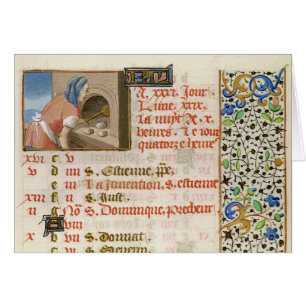 A xxxi Jour
Lune xxix
La nuyt a x
heures Le iour
quatorze heure
xvi c v
v d iiii S. Estienne ppe
e iii La Invention S. estienne
xiii f ii S. Iust
ii g No S. Dominique precheur
A viii
b vii S. Donnat
c vi S. Severin